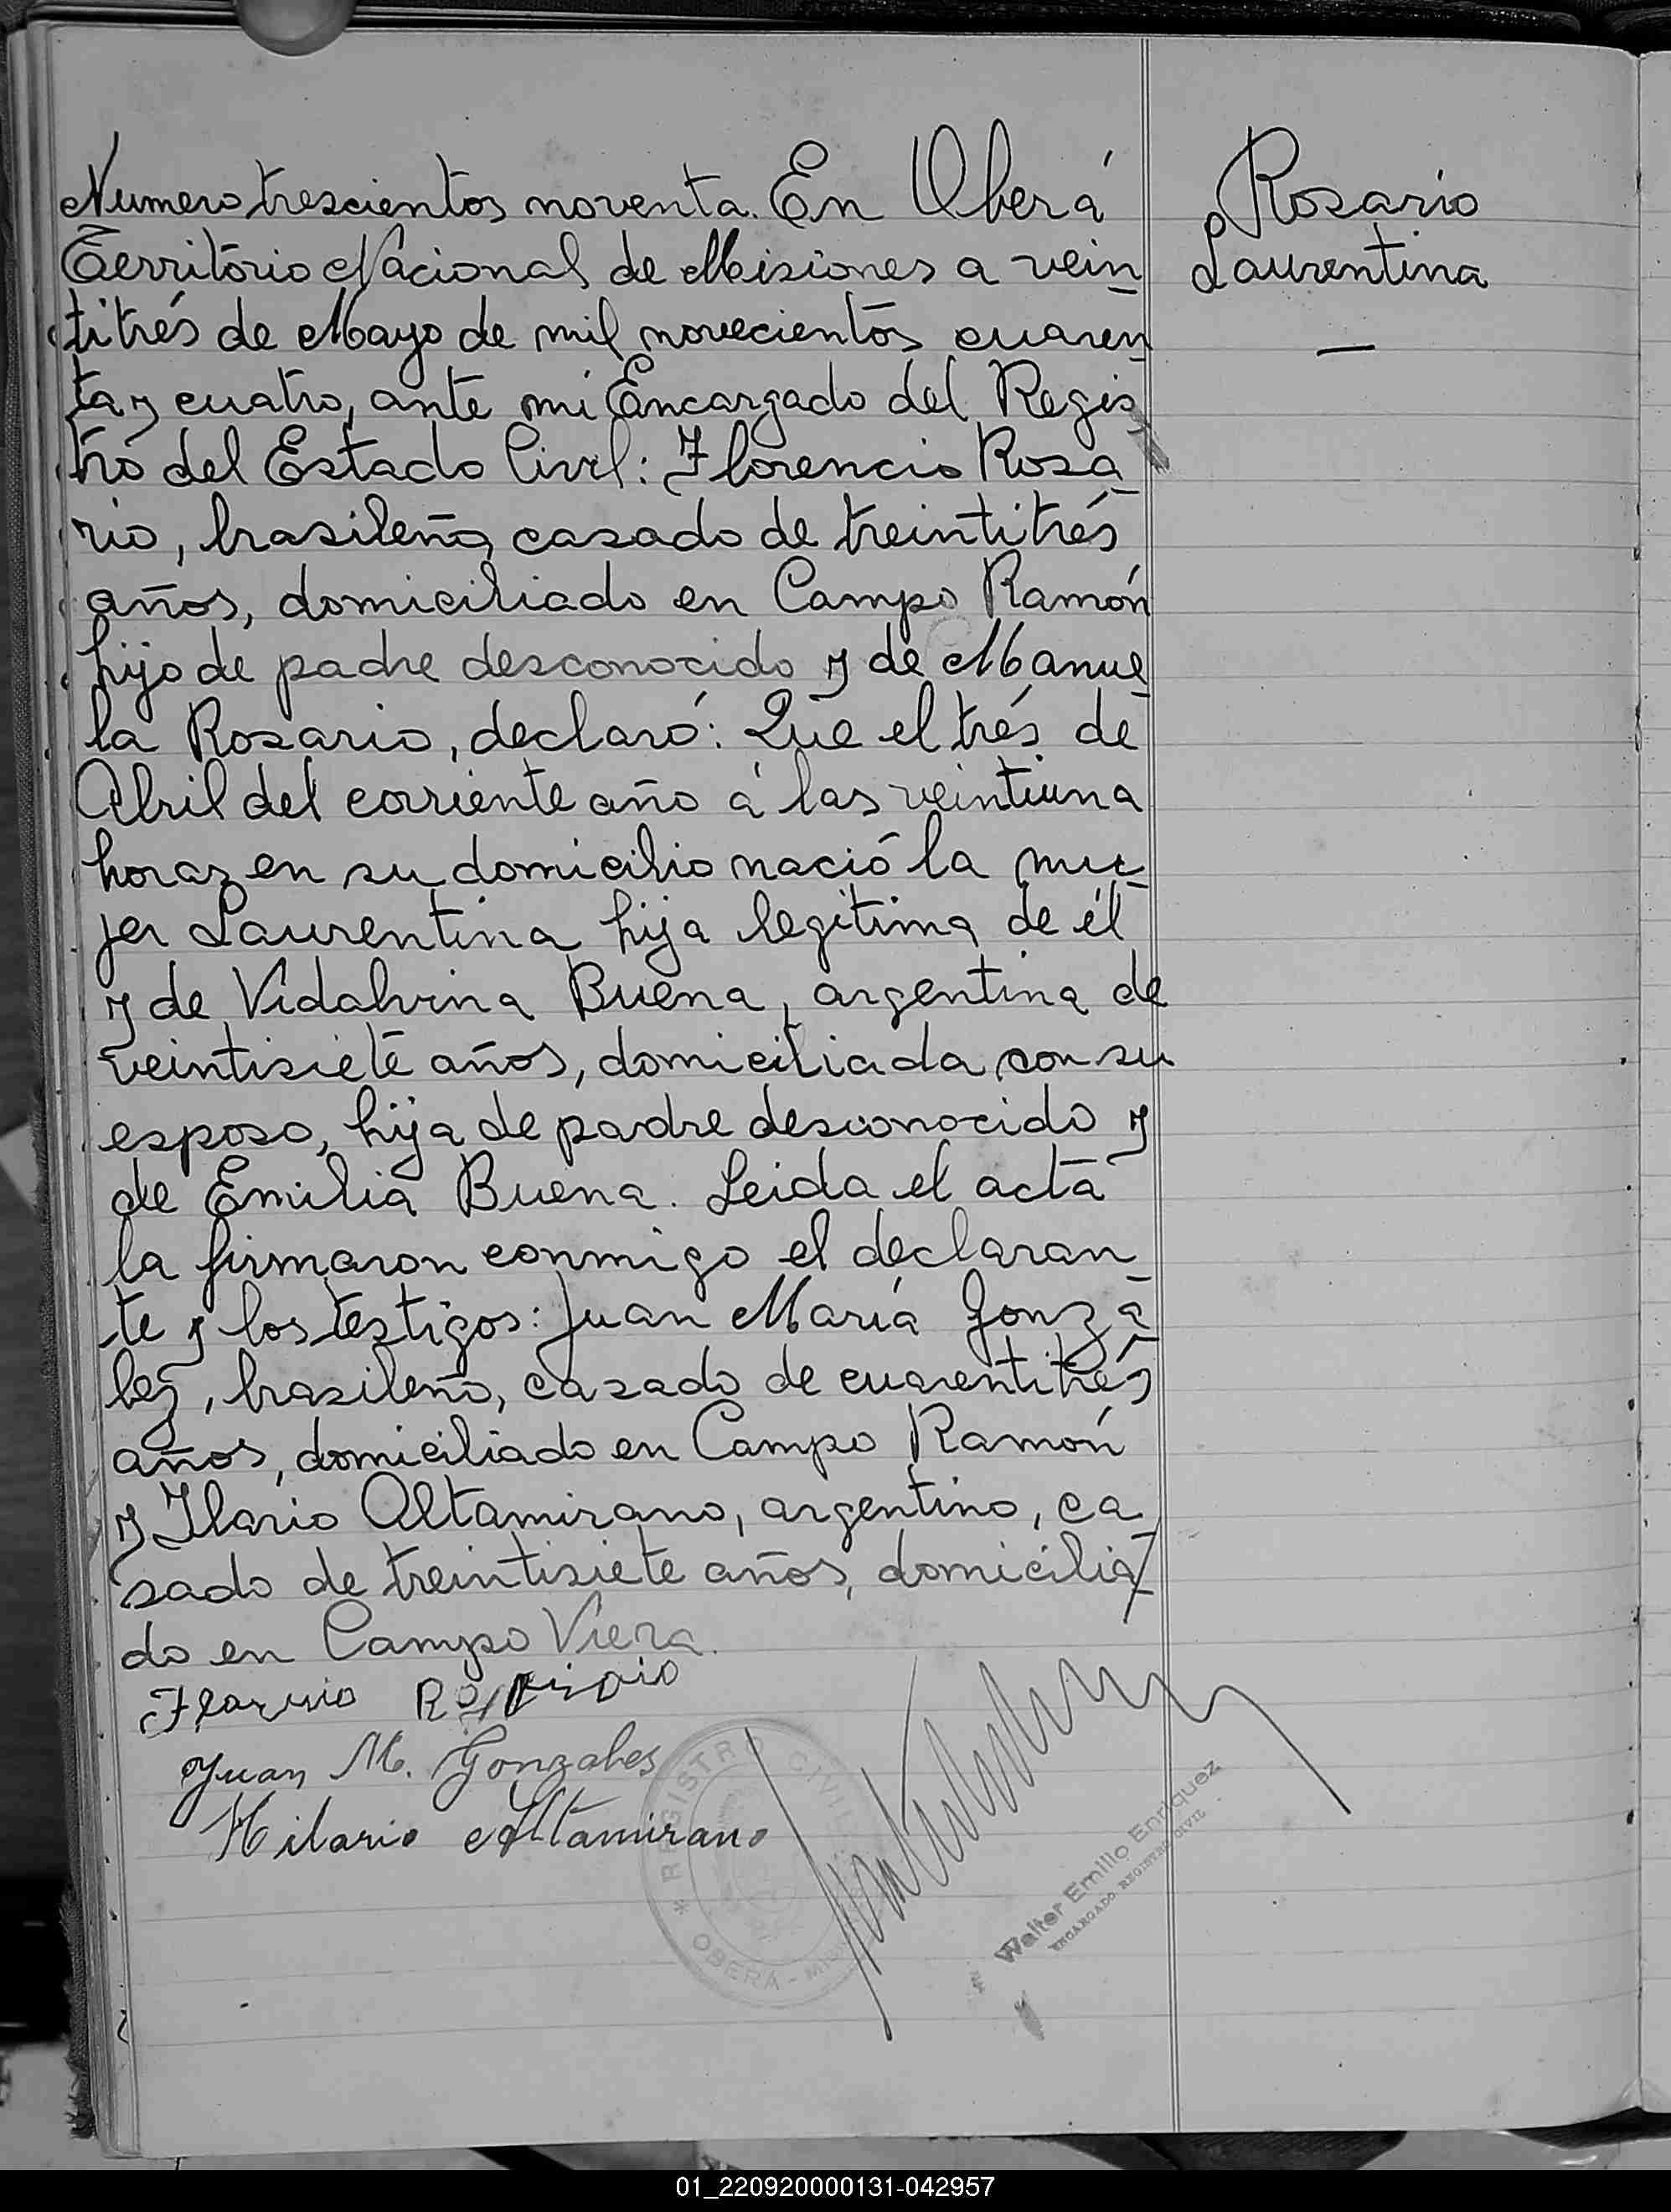 Numero trescientos noventa. En Oberá
Territorio Nacional de Misiones a vein
titrés de Mayo de mil novecientos cuaren
ta y cuatro, ante mi Encargado del Regis
tro del Estado Civil: Florencio Rosa
rio, brasileño, casado de treintitrés
años, domiciliado en Campo Ramón
hijo de padre desconocido y de Manue
la Rosario, declaró: Que el trés de
Abril del corriente año á las veintiuna
horas en su domicilio nació la mu
jer Laurentina hija legítima de él
y de Vidalvina Buena, argentina de
veintisiete años, domiciliada con su
esposo, hija de padre desconocido y
de Emilia Buena. Leida el acta
la firmaron conmigo el declaran
te y los testigos: Juan María Gonzá
lez, brasileño, casado de cuarentitrés
años, domiciliado en Campo Ramón
y Ilario Altamirano, argentino, ca
sado de treintisiete años, domicilia
do en Campo Viera.
Rosario
Laurentina
Juan M. Gonzales
Hilario Altamirano
* REGISTRO CIVIL
OBERÁ -
Walter Emilio Enriquez
ENCARGADO REGISTRO CIVIL
01_220920000131-042957